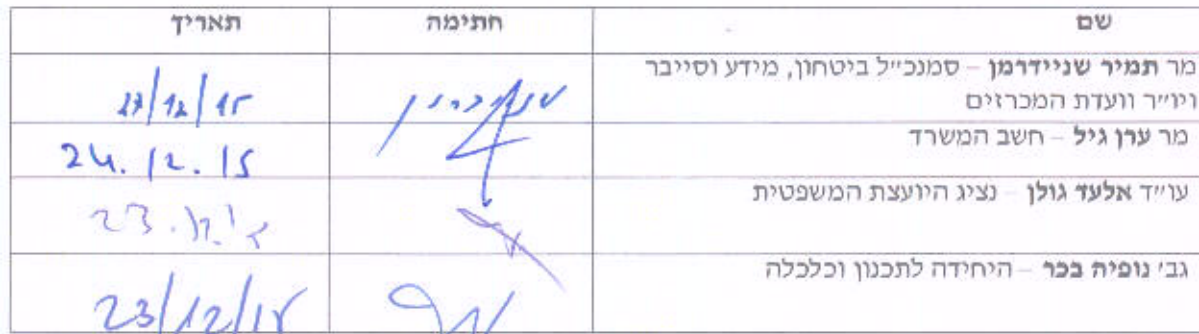 שם חתימה תאריך
מר תמיר שניידרמן – סמנכ״ל ביטחון, מידע וסייבר
ויו״ר וועדת המכרזים 27/12/15
מר ערן גיל – חשב המשרד 24.12.15
עו״ד אלעד גולן – נציג היועצת המשפטית 23.12.15
גב׳ נופיה בכר – היחידה לתכנון וכלכלה 23/12/15